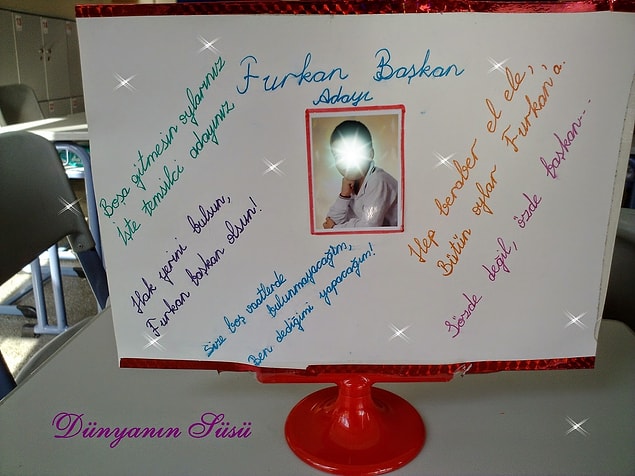 Furkan Başkan
Adayı
Boşa gitmesin oylarınız
İşte temsilci adayınız
Hak yerini bulsun,
Furkan başkan olsun!
Size boş vaatlerde
bulunmayacağım,
Ben dediğimi yapacağım!
Hep beraber el ele,
Bütün oylar Furkan'a.
Sözde değil, özde başkan...
Dünyanın Süsü